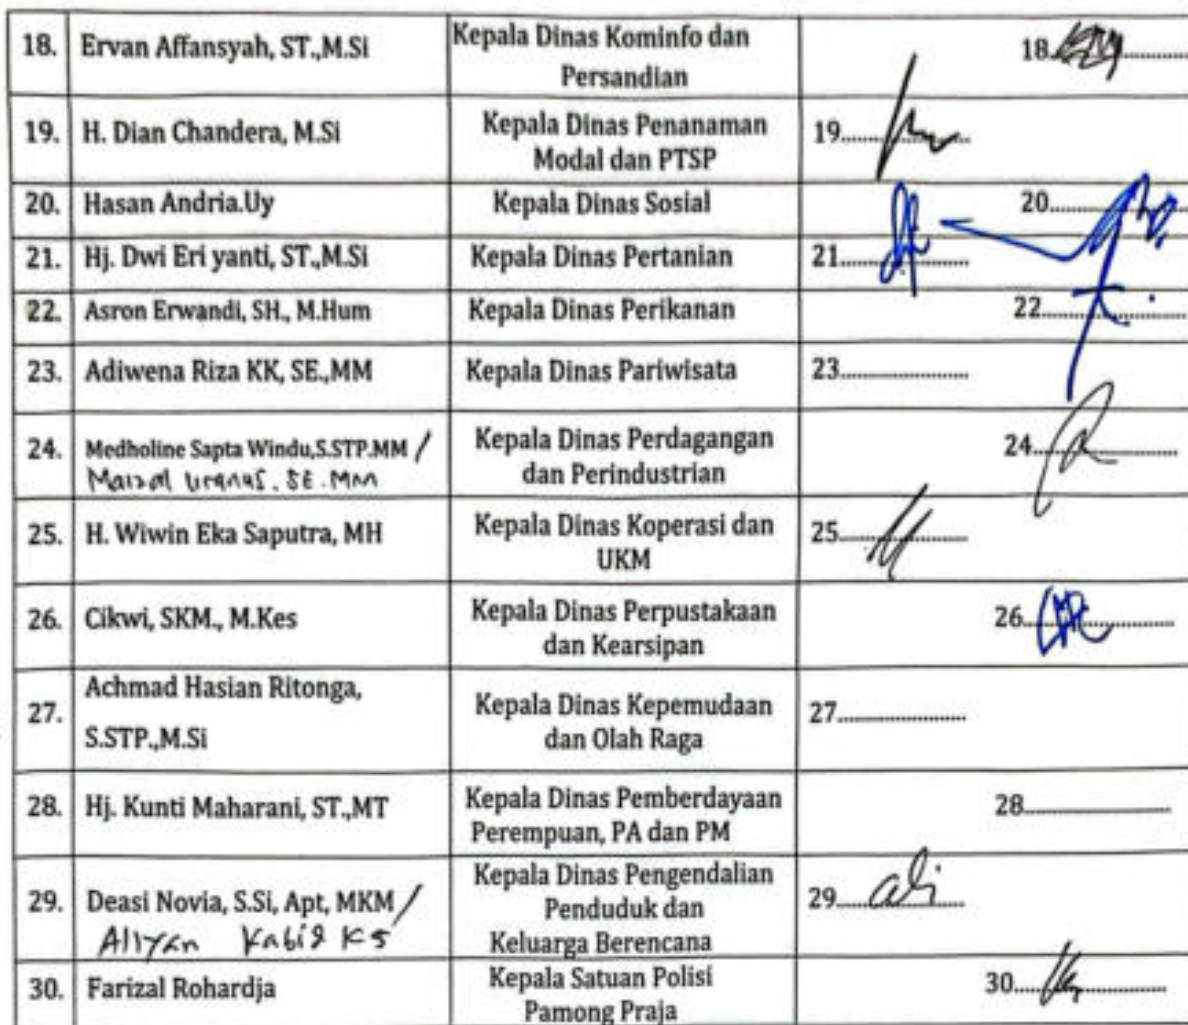 18. Ervan Affansyah, ST.,M.Si Kepala Dinas Kominfo dan 18
Persandian
19. H. Dian Chandera, M.Si Kepala Dinas Penanaman 19
Modal dan PTSP
20. Hasan Andria.Uy Kepala Dinas Sosial 20
21. Hj. Dwi Eri yanti, ST.,M.Si Kepala Dinas Pertanian 21
22. Asron Erwandi, SH., M.Hum Kepala Dinas Perikanan 22
23. Adiwena Riza KK, SE.,MM Kepala Dinas Pariwisata 23
24. Medholine Sapta Windu,S.STP.MM / Kepala Dinas Perdagangan 24
SE.MM dan Perindustrian
25. H. Wiwin Eka Saputra, MH Kepala Dinas Koperasi dan 25
UKM
26. Cikwi, SKM., M.Kes Kepala Dinas Perpustakaan 26
dan Kearsipan
27. Achmad Hasian Ritonga, Kepala Dinas Kepemudaan 27
S.STP.,M.Si dan Olah Raga
28. Hj. Kunti Maharani, ST.,MT Kepala Dinas Pemberdayaan 28
Perempuan, PA dan PM
29. Deasi Novia, S.Si, Apt, MKM / Kepala Dinas Pengendalian 29
Kabid KS Penduduk dan
Keluarga Berencana
30. Farizal Rohardja Kepala Satuan Polisi 30
Pamong Praja